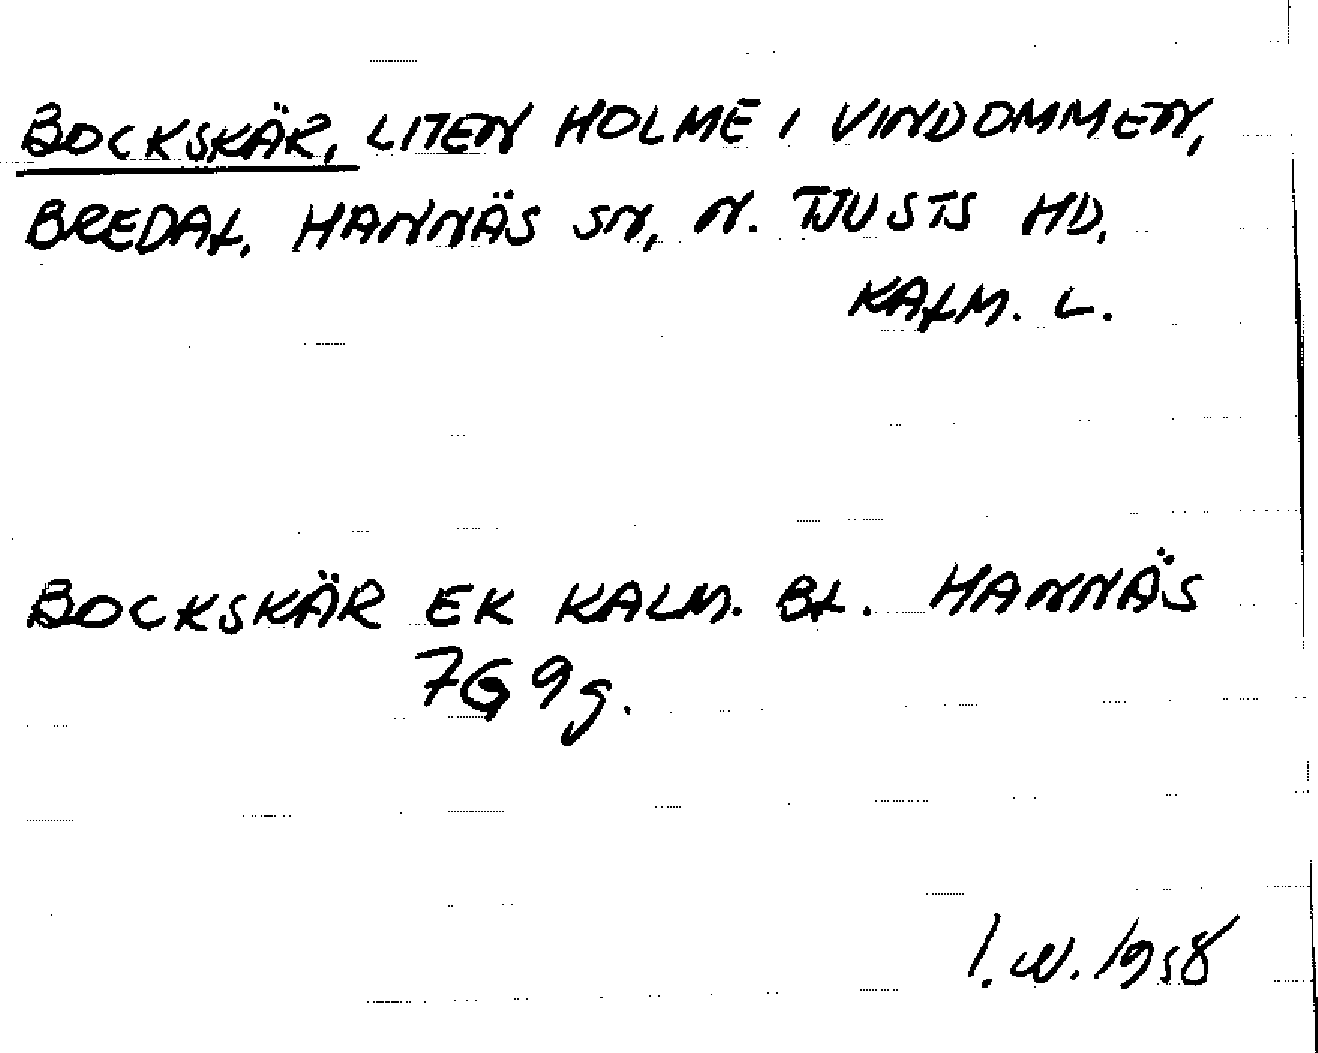 BOCKSKÄR, LITEN HOLME I VINDOMMEN,
BREDAL, HANNÄS SN, N. TJUSTS HD,
KALM. L.
BOCKSKÄR EK KALM. BL. HANNÄS
7G 9g.
I.W. 1958